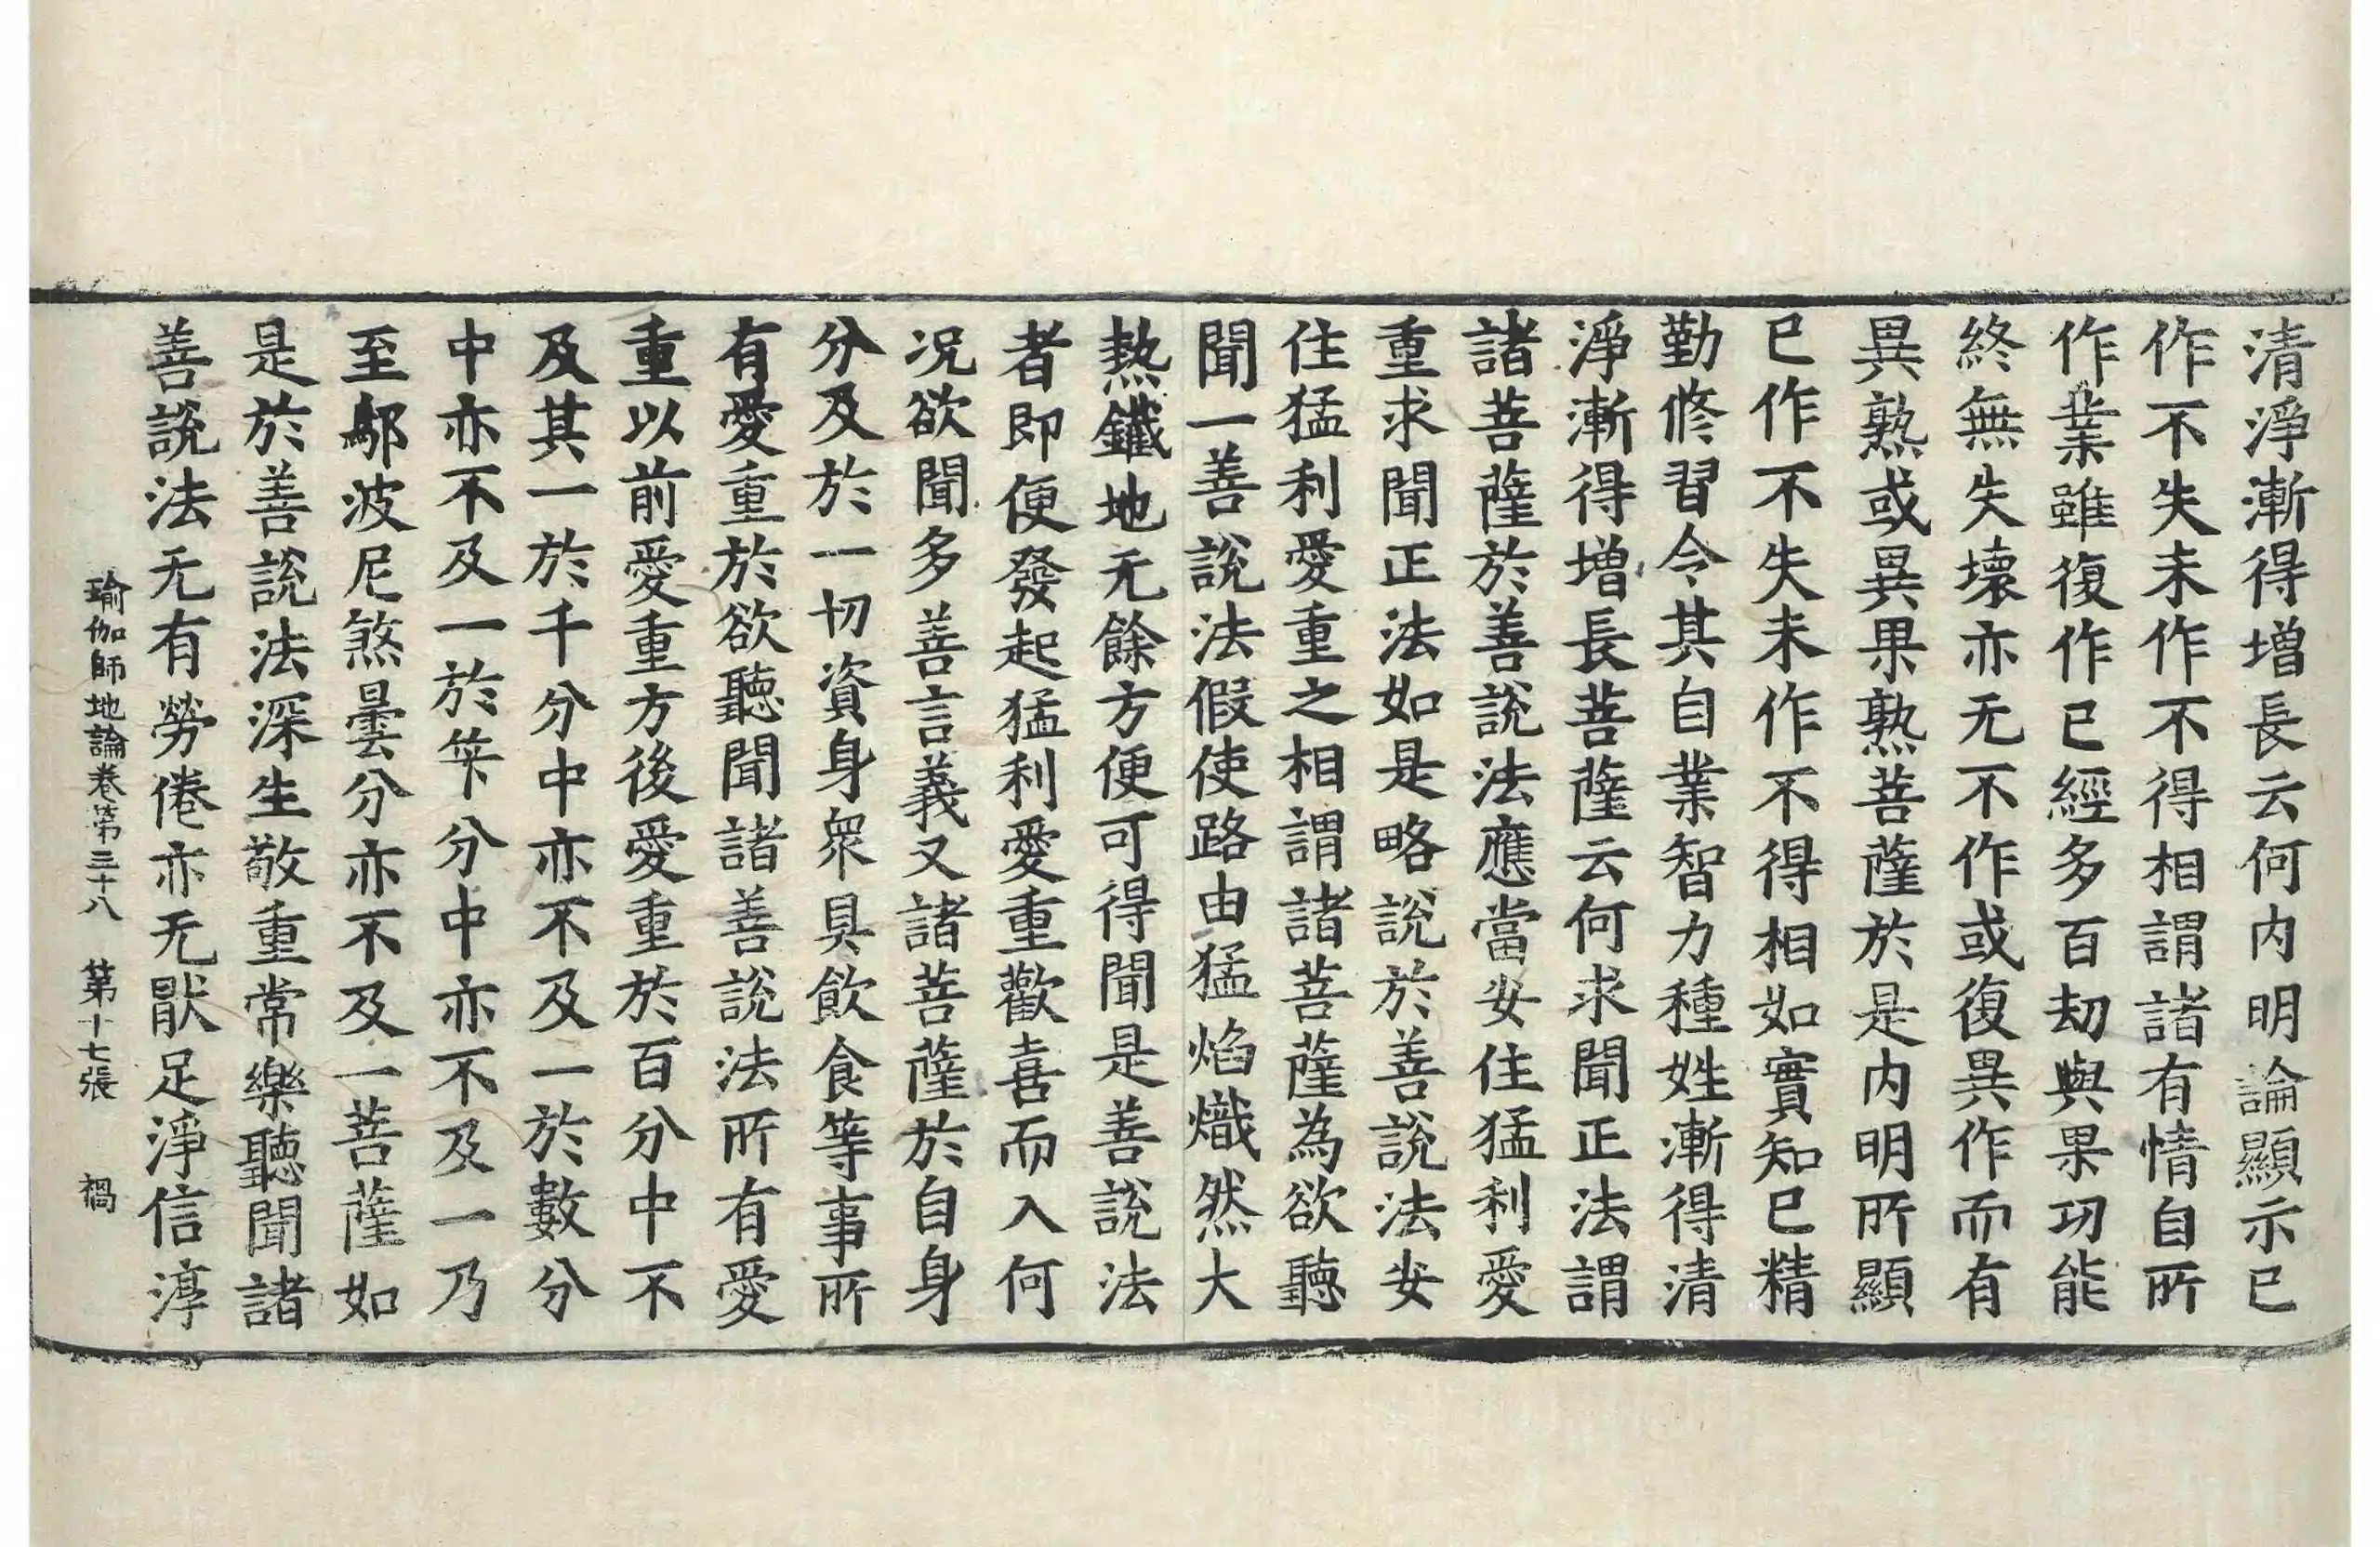 清淨漸得增長云何内明論顯示已
作不失未作不得相謂諸有情自所
作業雖復作已經多百劫與果功能
終無失壞亦无不作或復異作而有
異熟或異果熟菩薩於是内明所顯
已作不失未作不得相如實知已精
勤修習令其自業智力種姓漸得清
淨漸得增長菩薩云何求聞正法謂
諸菩薩於善說法應當安住猛利愛
重求聞正法如是略說於善說法安
住猛利愛重之相謂諸菩薩為欲聽
聞一善說法假使路由猛焰熾然大
熱鐵地无餘方便可得聞是善說法
者即便發起猛利愛重歡喜而入何
况欲聞多善言義又諸菩薩於自身
分及於一切資身衆具飲食等事所
有愛重於欲聽聞諸善說法所有愛
重以前愛重方後愛重於百分中不
及其一於千分中亦不及一於數分
中亦不及一於筭分中亦不及一乃
至鄔波尼煞曇分亦不及一菩薩如
是於善說法深生敬重常樂聽聞諸
善說法无有勞倦亦无猒足淨信淳
瑜伽師地論卷第三十八　第十七張　禍